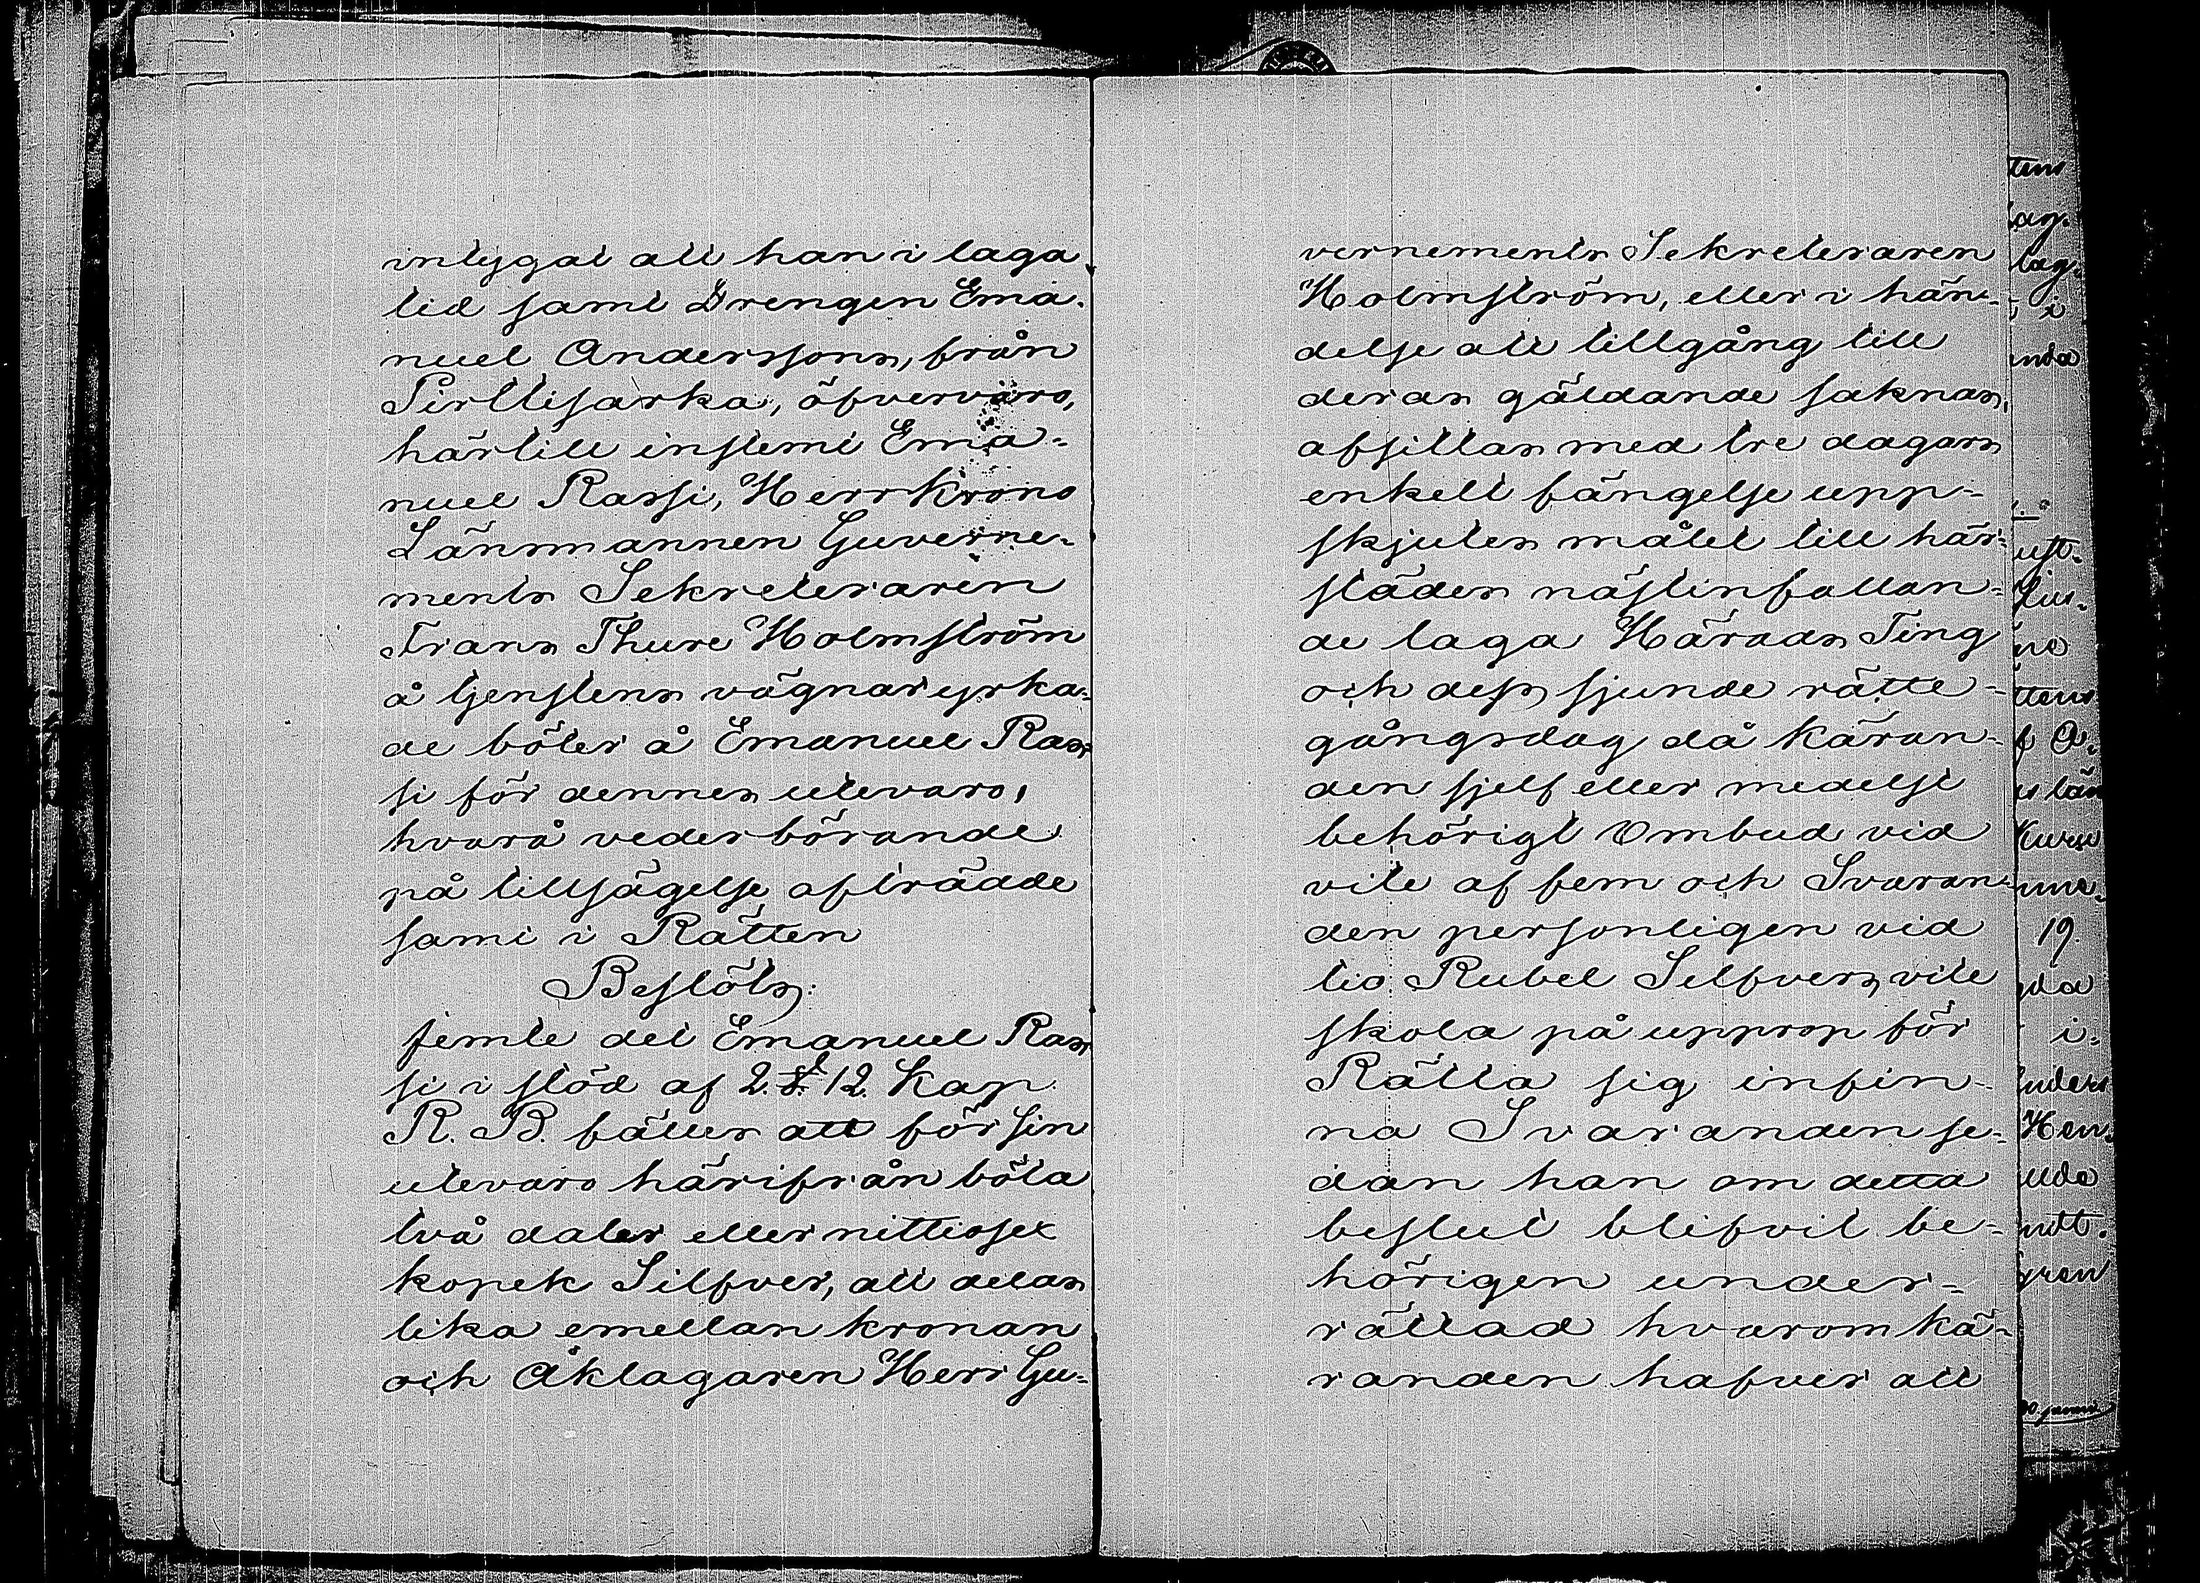 intygat att han i laga
tid samt Drengen Ema-
nuel Anderssons, från
Pirttisarka, öfvervaro,
härtill instemt Ema-
nuel Rassi, Herr Krono
Länsmannen Guverne-
ments Sekreteraren
Frans Thure Holmström
å tjenstens vägnar yrka-
de böter å Emanuel Ras-
si för dennes utevaro,
hvarå vederbörande
på tillsägelse afträdde
samt i Rätten
Beslöts:
jemte det Emanuel Ras
si i stöd af 2. §. 12. Kap.
R. B. fälles att för sin
utevaro härifrån böta
två daler eller nittiosex
kopek Silfver, att delas
lika emellan kronan
och Åklagaren Herr Gu-
vernements Sekreteraren
Holmström, eller i hän-
delse att tillgång till
deras gäldande saknas,
afsittas med tre dagars
enkelt fängelse upp-
skjutes målet till här-
städes nästinfallan-
de laga Härads Ting
och dess sjunde rätte-
gångsdag då käran-
den sjelf eller medelst
behörigt Ombud vid
vite af fem och Svaran-
den personligen vid
tio Rubel Silfvers vite
skola på upprop för
Rätta sig infin-
na Svaranden se-
dan han om detta
beslut blifvit be-
hörigen under-
rättad hvarom kä-
randen hafver att